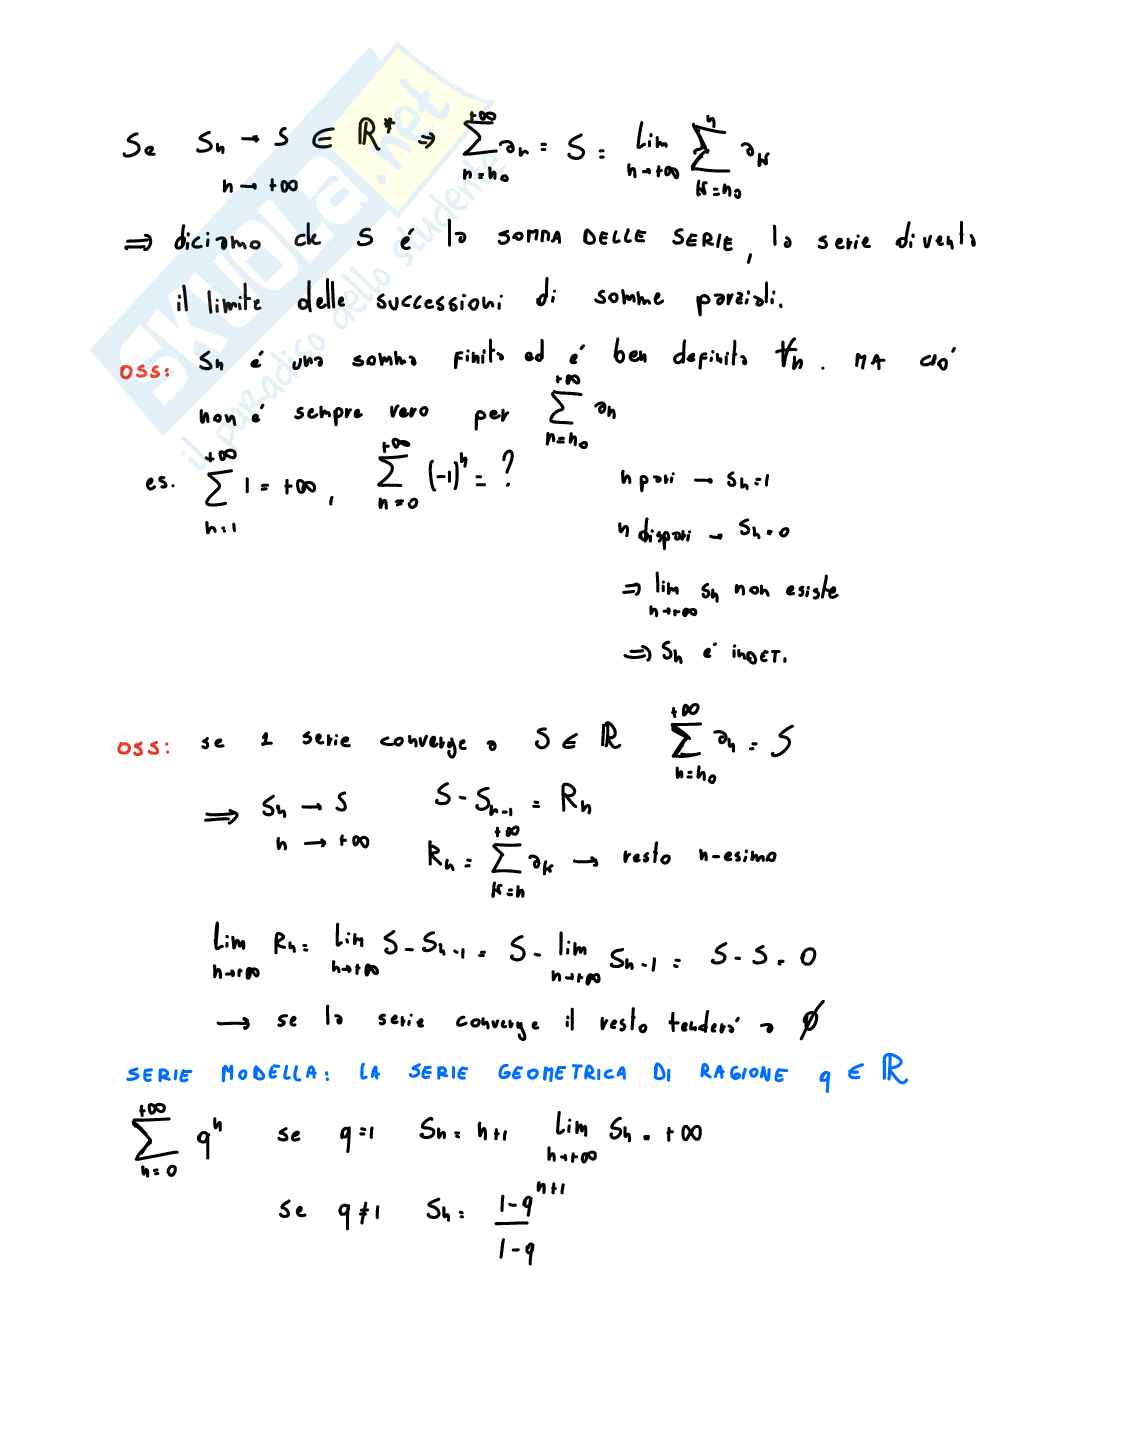 SKUOLA.net
il paradiso dello studente
Se Sn → S ∈ ℝ* ⇒ ∑_{n=n₀}^{+∞} an = S = lim_{n→+∞} ∑_{k=n₀}^{n} ak
n → +∞
⇒ diciamo che S é la SOMMA DELLE SERIE, la serie diventa
il limite delle successioni di somme parziali.
OSS: Sn é una somma finita ed é ben definita ∀n. MA ció
non é sempre vero per ∑_{n=n₀}^{+∞} an
es. ∑_{n=1}^{+∞} 1 = +∞, ∑_{n=0}^{+∞} (-1)^n = ? n pari → Sn=1
n dispari → Sn=0
⇒ lim_{n→+∞} Sn non esiste
⇒ Sn é inDET.
OSS: se 1 serie converge a S ∈ ℝ ∑_{n=n₀}^{+∞} an = S
⇒ Sn → S S - S_{n-1} = Rn
n → +∞ Rn = ∑_{k=n}^{+∞} ak → resto n-esimo
lim_{n→+∞} Rn = lim_{n→+∞} S - S_{n-1} = S - lim_{n→+∞} S_{n-1} = S - S = 0
→ se la serie converge il resto tenderá a ∅
SERIE MODELLA: LA SERIE GEOMETRICA DI RAGIONE q ∈ ℝ
∑_{n=0}^{+∞} q^n se q=1 Sn = n+1 lim_{n→+∞} Sn = +∞
se q≠1 Sn = (1-q^{n+1})/(1-q)